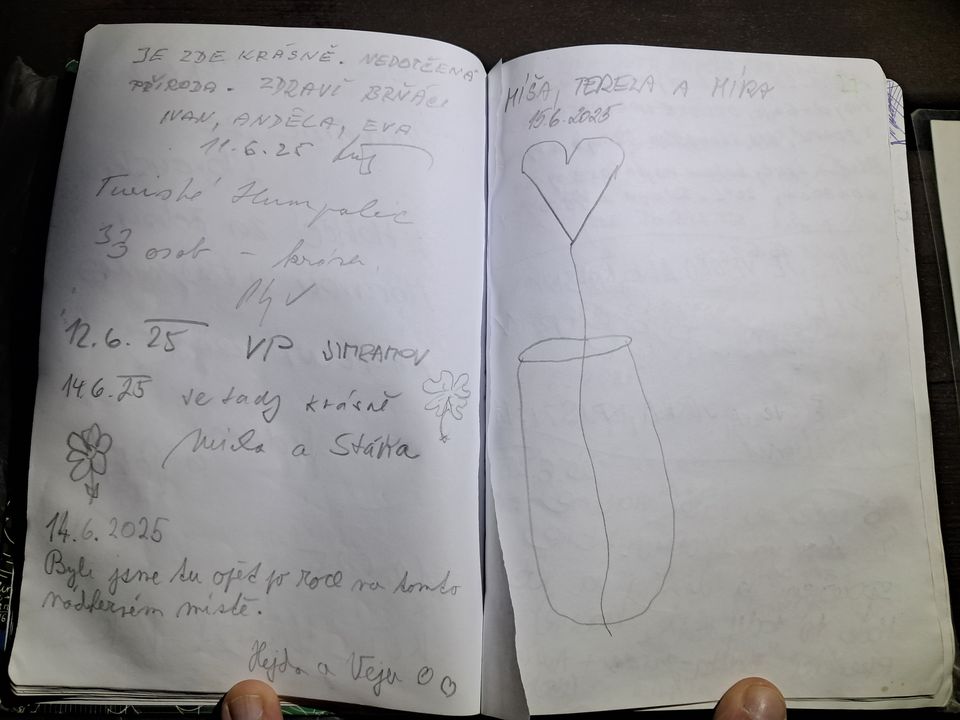 JE ZDE KRÁSNĚ. NEDOTČENÁ
PŘÍRODA. ZDRAVÍ BRŇÁCI
IVAN, ANDĚLA, EVA
11.6.25
Turisté Humpolec
33 osob - krása
12.6.25 VP JIMRAMOV
14.6.25 je tady krásně
a Stáňa
14.6.2025
Byli jsme tu opět po roce na tomto
nádherném místě.
Hejda a
MÍŠA, TEREZA A MÍRA
15.6.2025